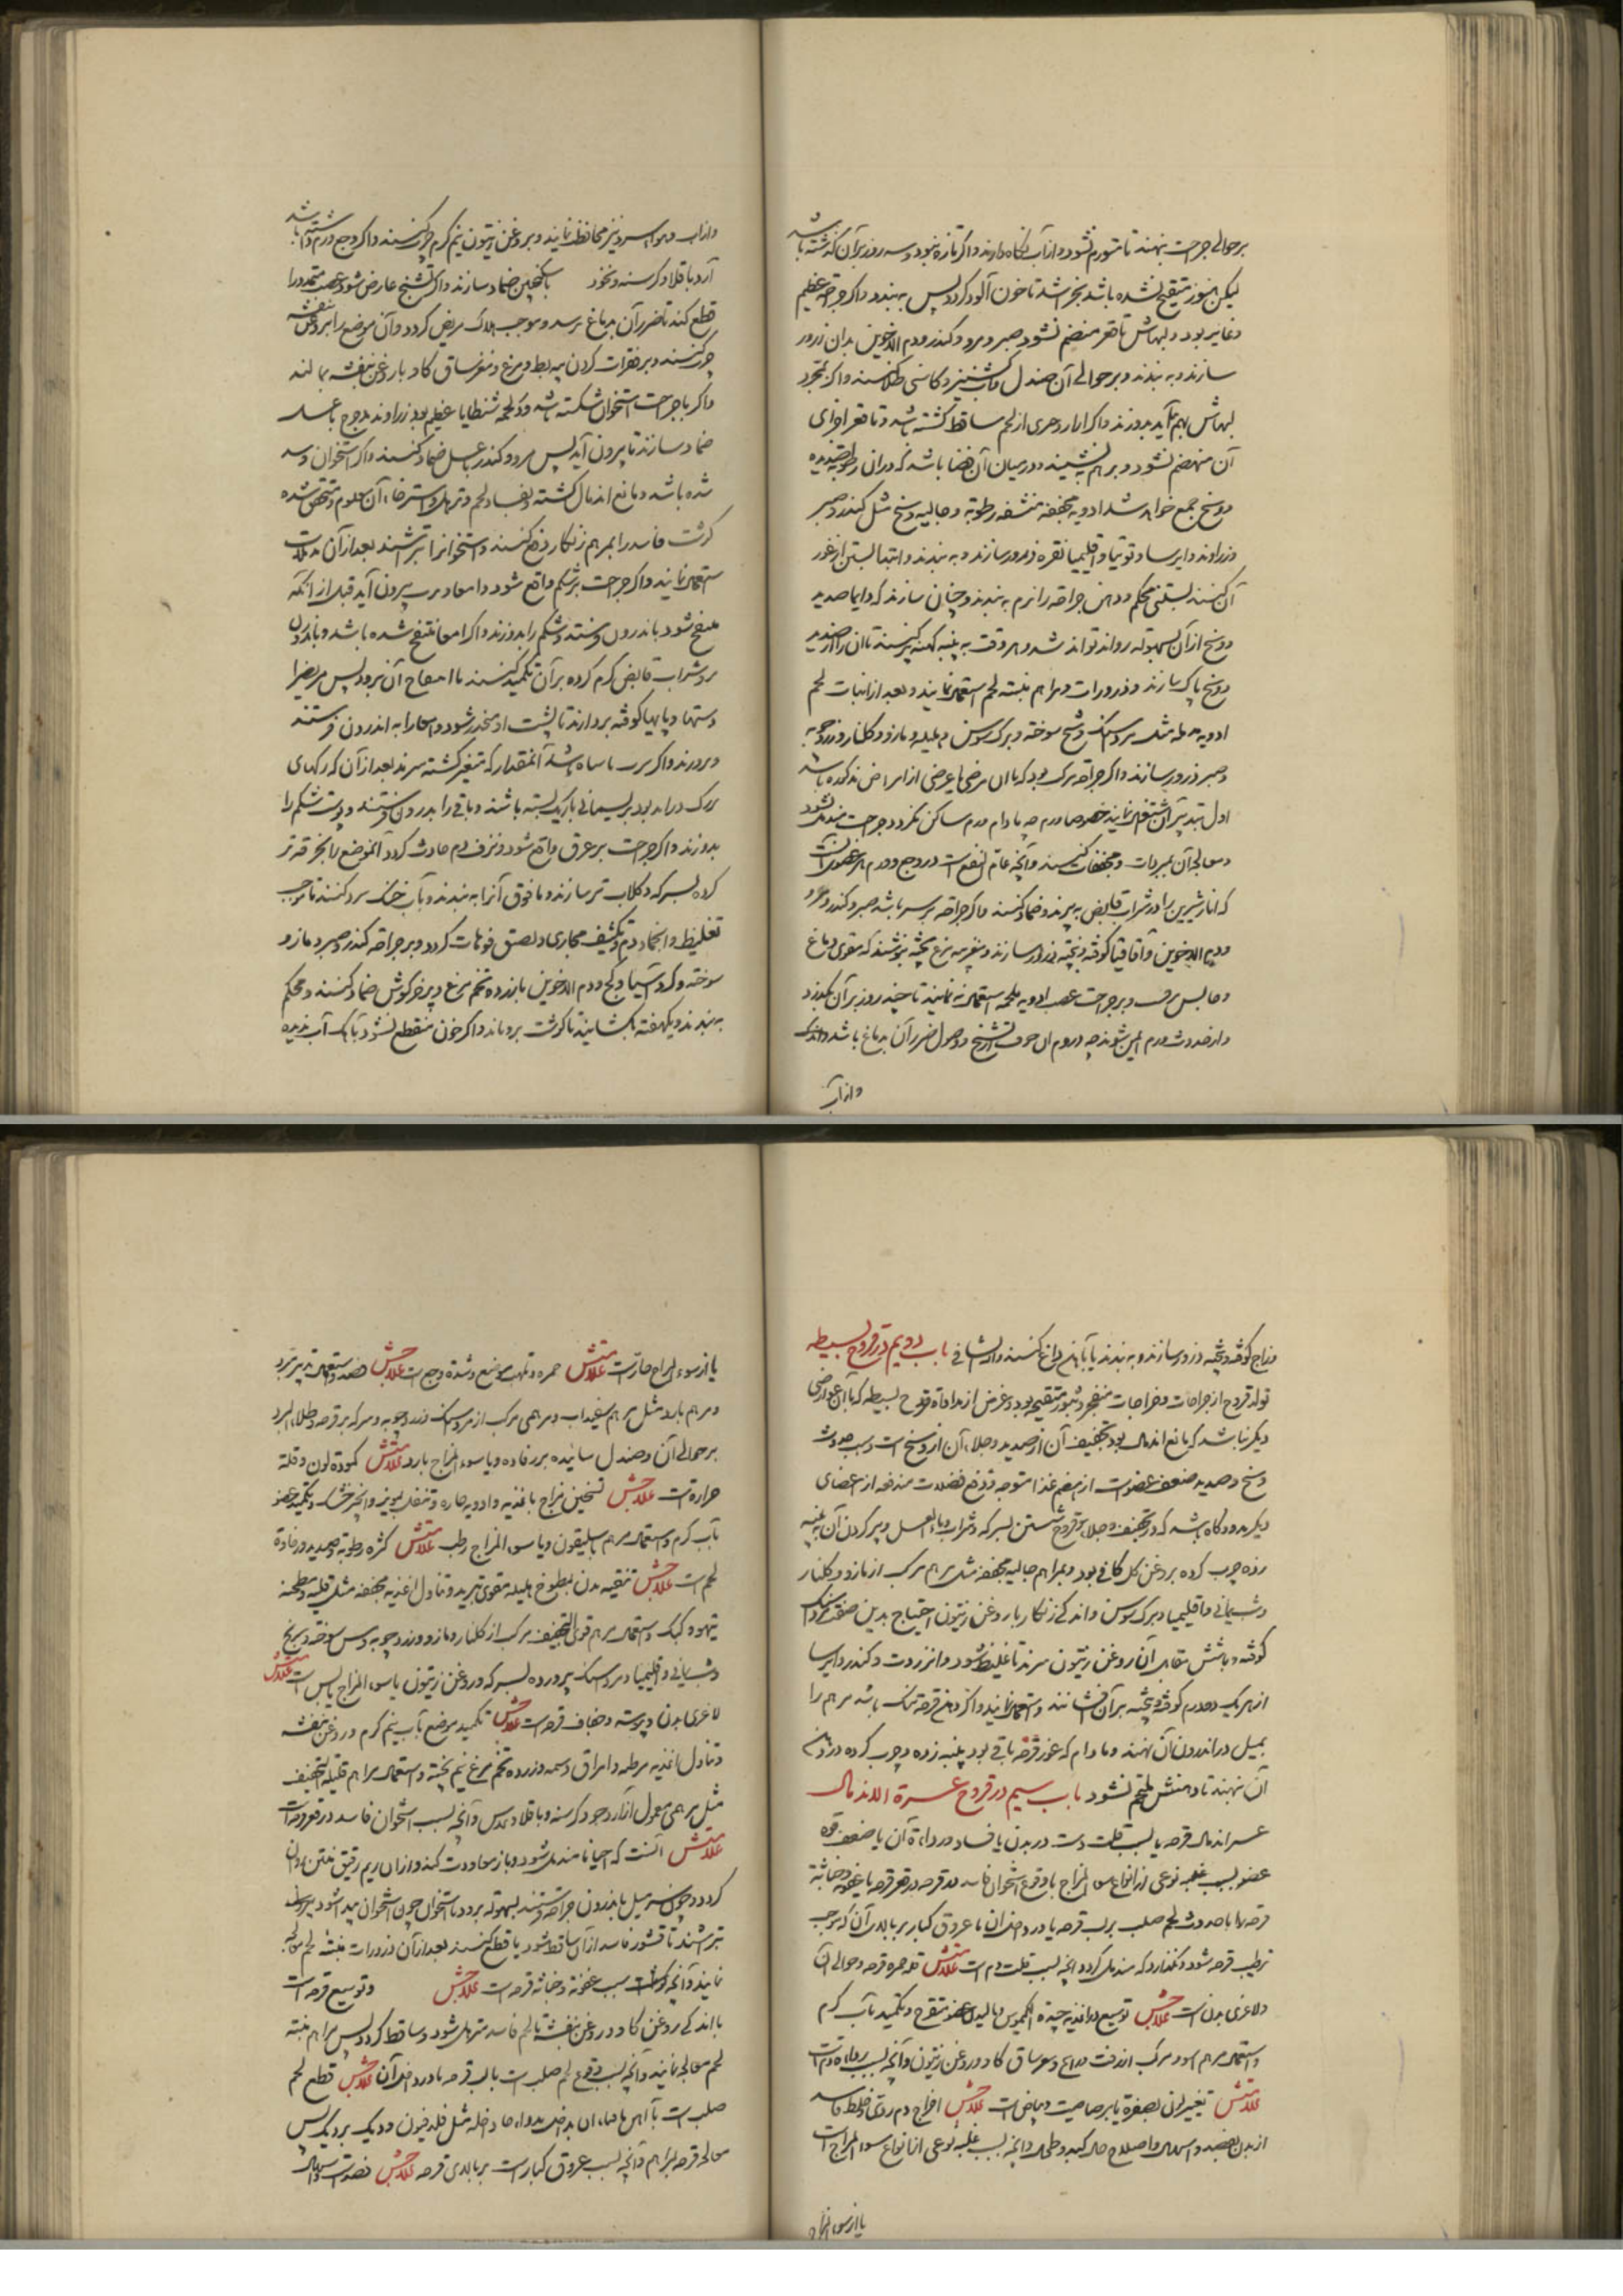 بر حوالی جراحت نهند تا متورم نشود و از آب نگاه دارند و اگر تازه نبود و سه روز بر آن گذشته باشد
لیکن هنوز متقیح نشده باشد بخراشند تا خون آلود گردد پس به بندند و اگر جراحه عظیم
و غایر بود و لبهاش تا قعر منضم نشود صبر و مر و کندر و دم الاخوین بدان ذرور
سازند و به بندند و بر حوالی آن صندل و آب کشنیز و کاسنی طلا کنند و اگر بمجرد
لبهاش بهم نیاید بدوزند و اگر از لحم ساقط گشته باشد و تا قعر اجزای
آن منضم نشود و بر هم نشیند و در میان آن فضا باشد که در آن رطوبه صدیدیه
و وسخ جمع خواهد شد ادویه مجففه منشفه رطوبه و جالیه وسخ مثل کندر و صبر
و زراوند و ایرسا و توتیا و اقلیمیا نقره ذرور سازند و به بندند و ابتدا بستن از غور
آن کنند بستنی محکم و دهن جراحه را نرم به بندند و چنان سازند که دایما صدید
و وسخ از آن بسهوله روان تواند شد و هر وقت به پنبه کهنه پر کنند تا آن را از صدید
و وسخ پاک سازند و ذرورات و مراهم منبته لحم استعمال نمایند و بعد از انبات لحم
ادویه مدمله مثل مرداسنگ و شبح سوخته و برک سوسن و هلیله و مازو و گلنار و زردچوبه
و صبر ذرور سازند و اگر جراحه مرکب بود که با آن مرضی یا عرضی از امراض مذکوره باشد
اول بتدبیر آن اشتغال نمایند خصوصا ورم چه مادام ورم ساکن نگردد جراحت مندمل نشود
و معالجه آن بمبردات و مجففات کنند و آنچه عام النفع است در وجع و ورم هر عضوی آنست
که انار شیرین را در شراب قابض به پزند و ضماد کنند و اگر جراحه بر سر باشد صبر و کندر و مر
و دم الاخوین و اقاقیا کوفته و بیخته ذرور سازند و مغز سر مرغ پخته بنوشند که مقوی دماغ
و حابس نزف و بر جراحت عصب ادویه ملحمه استعمال نه نمایند تا چند روز بر آن بگذرد
و از حدوث ورم ایمن شوند چه در ورم آن خوف تشنج و وصول ضرر آن بدماغ باشد
و از آب
و از آب و هوا سرد نیز محافظت نمایند و بروغن زیتون نیم گرم چرب کنند و اگر وجع و ورم داشته باشد
آرد باقلا و کرسنه و نخود با سکنجبین ضماد سازند و اگر تشنج عارض شود عصب متمدد را
قطع کند تا ضرر آن بدماغ نرسد و موجب هلاک مریض گردد و آن موضع را بروغن بنفشه
چرب کنند و بر فقرات گردن پیه بط و مرغ و مغز ساق گاو با روغن بنفشه بمالند
و اگر با جراحت استخوان شکسته باشد و در لحمه شظایا عظیم بود زراوند مدحرج با عسل
ضماد سازند تا بیرون آید پس مر و کندر با عسل ضماد کنند و اگر استخوان فاسد
شده باشد و مانع اندمال گشته و بفساد لحم و ترهل و استرخاء آن معلوم و متحقق شده
گوشت فاسد را بمرهم زنگار رفع کنند و استخوان را بتراشند بعد از آن مدملات
استعمال نمایند و اگر جراحت بر شکم واقع شود و امعاء و ثرب بیرون آید قبل از آنکه
منتفخ شود باندرون فرستند و شکم را بدوزند و اگر امعا منتفخ شده باشد و باندرون
نرود شراب قابض گرم کرده بر آن تکمید کنند تا انتفاخ آن برود پس مریض را
دستها و پایها گرفته بردارند تا پشت او منحدر شود و امعا را به اندرون فرستند
و بدوزند و اگر ثرب سیاه شد آنمقدار که متغیر گشته ببرند بعد از آن که رگهای
بزرگ در آن بود بریسمانی باریک بسته باشند و باقی را بدرون فرستند و پوست شکم را
بدوزند و اگر جراحت بر عرق واقع شود و نزف دم حادث گردد آنموضع را بخرقه تر
کرده بسرکه و گلاب تر سازند و ما فوق آنرا به بندند و بآب خنک سرد کنند تا موجب
تغلیظ و انجماد دم و تکثیف مجاری و لصق فوهات گردد و بر جراحه کندر و صبر و مازو
سوخته و گرد آسیا و گچ و دم الاخوین با زرده تخم مرغ و پر خرگوش ضماد کنند و محکم
به بندند و یکهفته نگشایند تا گوشت برویاند و اگر خون منقطع نشود بآهک آب ندیده
و زاج کوفته و بیخته ذرور سازند و به بندند یا بآهن داغ کنند والله الشافی باب دویم در قروح بسیطه
تولد قروح از جراحات و خراجات منفجره و بثور متقیحه بود و غرض از مداواة قروح بسیطه که با آن عوارضی
دیگر نباشد که مانع اندمال بود تجفیف آن از صدید و جلاء آن از وسخ است و سبب حدوث
وسخ و صدید ضعف عضو است از هضم غذا متوجه و دفع فضلات مندفعه از اعضای
دیگر بدو و گاه باشد که در تجفیف و جلاء قروح شستن بسرکه و شراب و ماء العسل و پر کردن آن به پنبه
زده چرب کرده بروغن گل کافی بود و بمراهم جالیه مجففه مثل مرهم مرکب از مازو و گلنار
و شب یمانی و اقلیمیا و برک سوسن و اندکی زنگار با روغن زیتون احتیاج بدین صفت مرداسنگ
کوفته و با شش مقدار آن روغن زیتون پزند تا غلیظ شود و انزروت و کندر و ایرسا
از هر یک دو درم کوفته و بیخته بر آن افشانند و استعمال نمایند و اگر دهن قرحه تنگ باشد مرهم را
بمیل در اندرون آن نهند و مادام که غور قرحه باقی بود پنبه زده و چرب کرده در دهن
آن نهند تا دهنش ملتحم نشود باب سیم در قروح عسرة الاندمال
عسر اندمال قرحه یا بسبب قلت دم است در بدن یا فساد و رداءة آن یا ضعف قوه
عضو بسبب غلبه نوعی از انواع سوء المزاج یا وقوع استخوان فاسد در قرحه در قعر قرحه یا عفونة و خباثة
قرحه یا حدوث لحم صلب بر لب قرحه یا در داخل آن یا عروق کبار بر بالای آن که موجب
ترطیب قرحه شود و نگذارد که مندمل گردد و آنچه بسبب قلت دم است علامتش قلة حمرة قرحه و حوالی آن
و لاغری بدن است علاجش توسیع در اغذیه جیدة الکیموس و مالیدن عضو متقرح و تکمید بآب گرم
و استعمال مرهم اسود مرکب از زفت و راتینج و موم و ساق گاو و روغن زیتون و آنچه بسبب رداءة دم است
علامتش تغییر لون بصفرة یا برصاصیت و بیاض است علاجش اخراج دم ردی و خلط فاسد
از بدن بفصد و اسهال و اصلاح حال کبد و طحال و آنچه بسبب غلبه نوعی از انواع سوء المزاج است
یا از سوء المزاج
یا از سوء المزاج حار است علامتش حمره و تلهب موضع و شدة وجع است علاجش فصد و استعمال تدبیر مبرد
و مرهم بارد مثل مرهم سفیداب و مرهمی مرکب از مرداسنگ و زردچوبه و سرکه بر قرحه و طلاء المبرد
بر حوالی آن و صندل سائیده بر رفاده و یا سوء المزاج بارد علامتش کمودة لون و قلة
حرارة است علاجش تسخین مزاج باغذیه و ادویه حاره و تنقل بمویز و انجیر خشک و تکمید عضو
بآب گرم و استعمال مرهم باسلیقون و یا سوء المزاج رطب علامتش کثرة رطوبة و صدید و رخاوة
لحم است علاجش تنقیه بدن بمطبوخ هلیله مقوی بتربد و تناول اغذیه مجففه مثل قلیه و مطجنه
تیهو و کبک و استعمال مرهم قوی التجفیف مرکب از گلنار و مازو و زردچوبه و مس سوخته و زنج
و شب یمانی و اقلیمیا و مرداسنگ پرورده بسرکه و روغن زیتون یا سوء المزاج یابس است علامتش
لاغری بدن و یبوسة و جفاف قرحه است علاجش تکمید موضع بآب نیم گرم و روغن بنفشه
و تناول اغذیه مرطبه و امراق دسمه و زرده تخم مرغ نیم پخته و استعمال مراهم قلیلة التجفیف
مثل مرهمی معمول از آرد جو و کرسنه و باقلا و عدس و آنچه بسبب استخوان فاسد در قعر قرحه است
علامتش آنست که احیانا مندمل شود و باز معاودت کند و از آن ریم رقیق منتن روان
گردد و چون سر میل باندرون جراحه فرستند بسهوله برود تا استخوان چون استخوان پیدا شود بیرون
تراشند تا قشور فاسد از آن ساقط شود یا قطع کنند بعد از آن ذرورات منبته لحم معالجه
نمایند و آنچه بسبب عفونة و خباثة قرحه است علاجش و توسیع قرحه است
با اندکی روغن گاو و روغن بنفشه تا لحم فاسد مترهل شود و ساقط گردد پس بمراهم منبته
لحم معالجه نمایند و آنچه بسبب وقوع لحم صلب است بالب قرحه یا در داخل آن علاجش قطع لحم
صلب است بآهن یا فناء آن بادویه حاده اکاله مثل فلدفیون و دیک بردیک پس
معالجه قرحه بمراهم و آنچه بسبب عروق کبار است بر بالای قرحه علاجش فصد است و اسهال